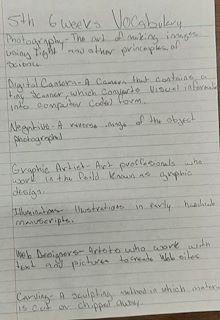 5th 6 weeks Vocabulary
Photography- The art of making images
using light and other principles of
science.
Digital Camera- A Camera that contains a
tiny scanner, which converts visual
into computer coded form.
Negative- A reverse image of the object
photographed
Graphic Artist- Art proffesionals who
work in the feild known as graphic
design.
Illuminations- Illustrations in early
manuscripts.
Web Designers- Artists who work with
text and pictures to create Web sites
Carving- A sculpting method in which material
is cut or chipped away.